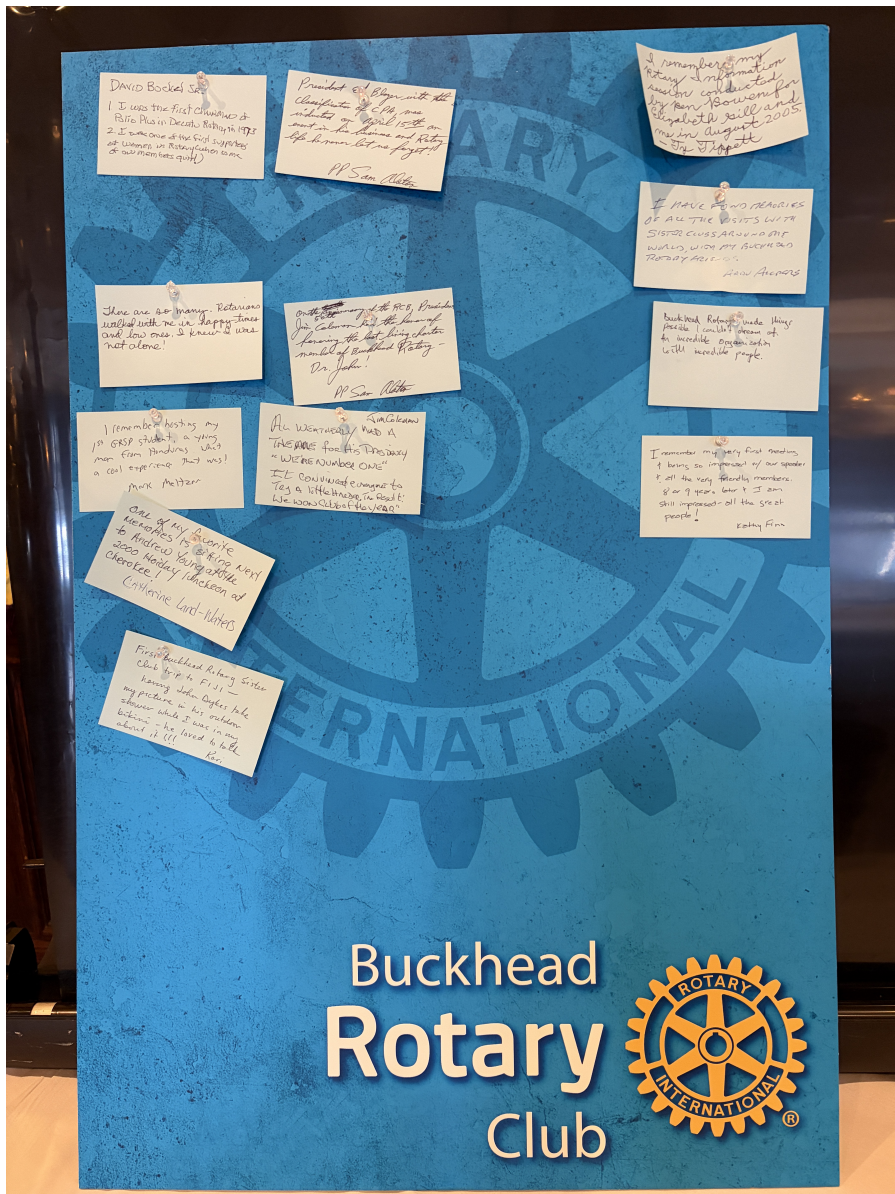 DAVID Bockel Sr
1. I was the First Chairman of
Polio Plus in Decatur Rotary in 1973
2. I was one of the First supporters
of women in Rotary (when some
of our members quit)
President Ed Bloger, with the
classification of CPA, was
inducted on April 15th an
event in his business and Rotary
life he never let me forget!!
PP Sam
I remember my
Rotary Information
session conducted
by Ken Bowen for
Elizabeth Gill and
me in August 2005.
- Ty Tippett
I HAVE FOND MEMORIES
OF ALL THE VISITS WITH
SISTER CLUBS AROUND THE
WORLD, WITH MY BUCKHEAD
ROTARY FRIENDS.
There are so many. Rotarians
walked with me in happy times
and low ones. I knew I was
not alone!
On the 50th of the RCB, President
Jim Coleman had the honor of
honoring the last living charter
member of Buckhead Rotary -
Dr. John!
PP Sam
Buckhead Rotary made things
possible I couldn't dream of.
An incredible organization
with incredible people.
I remember hosting my
1st GRSP student, a young
man from Honduras. What
a cool experience that was!
Mark Meltzer
Jim Coleman
AL WEATHERLY HAD A
THEME for His Presidency
"WE'RE NUMBER ONE"
IT CONVINCED everyone to
Try a little Harder, The Result:
We won "Club of the YEAR"
I remember my very first meeting
& being so impressed w/ our speaker
& all the very friendly members.
8 or 9 years later & I am
still impressed - all the great
people!
Kathy Finn
One of my favorite
Memories is sitting next
to Andrew Young at the
2000 Holiday luncheon at
Cherokee!
Catherine Land-Waters
First Buckhead Rotary Sister
Club trip to FIJI —
having John Dykes take
my picture in his outdoor
shower while I was in my
bikini - he loved to talk
about it!!!
Kari
ROTARY
INTERNATIONAL
Buckhead
Rotary
Club
ROTARY
INTERNATIONAL
®